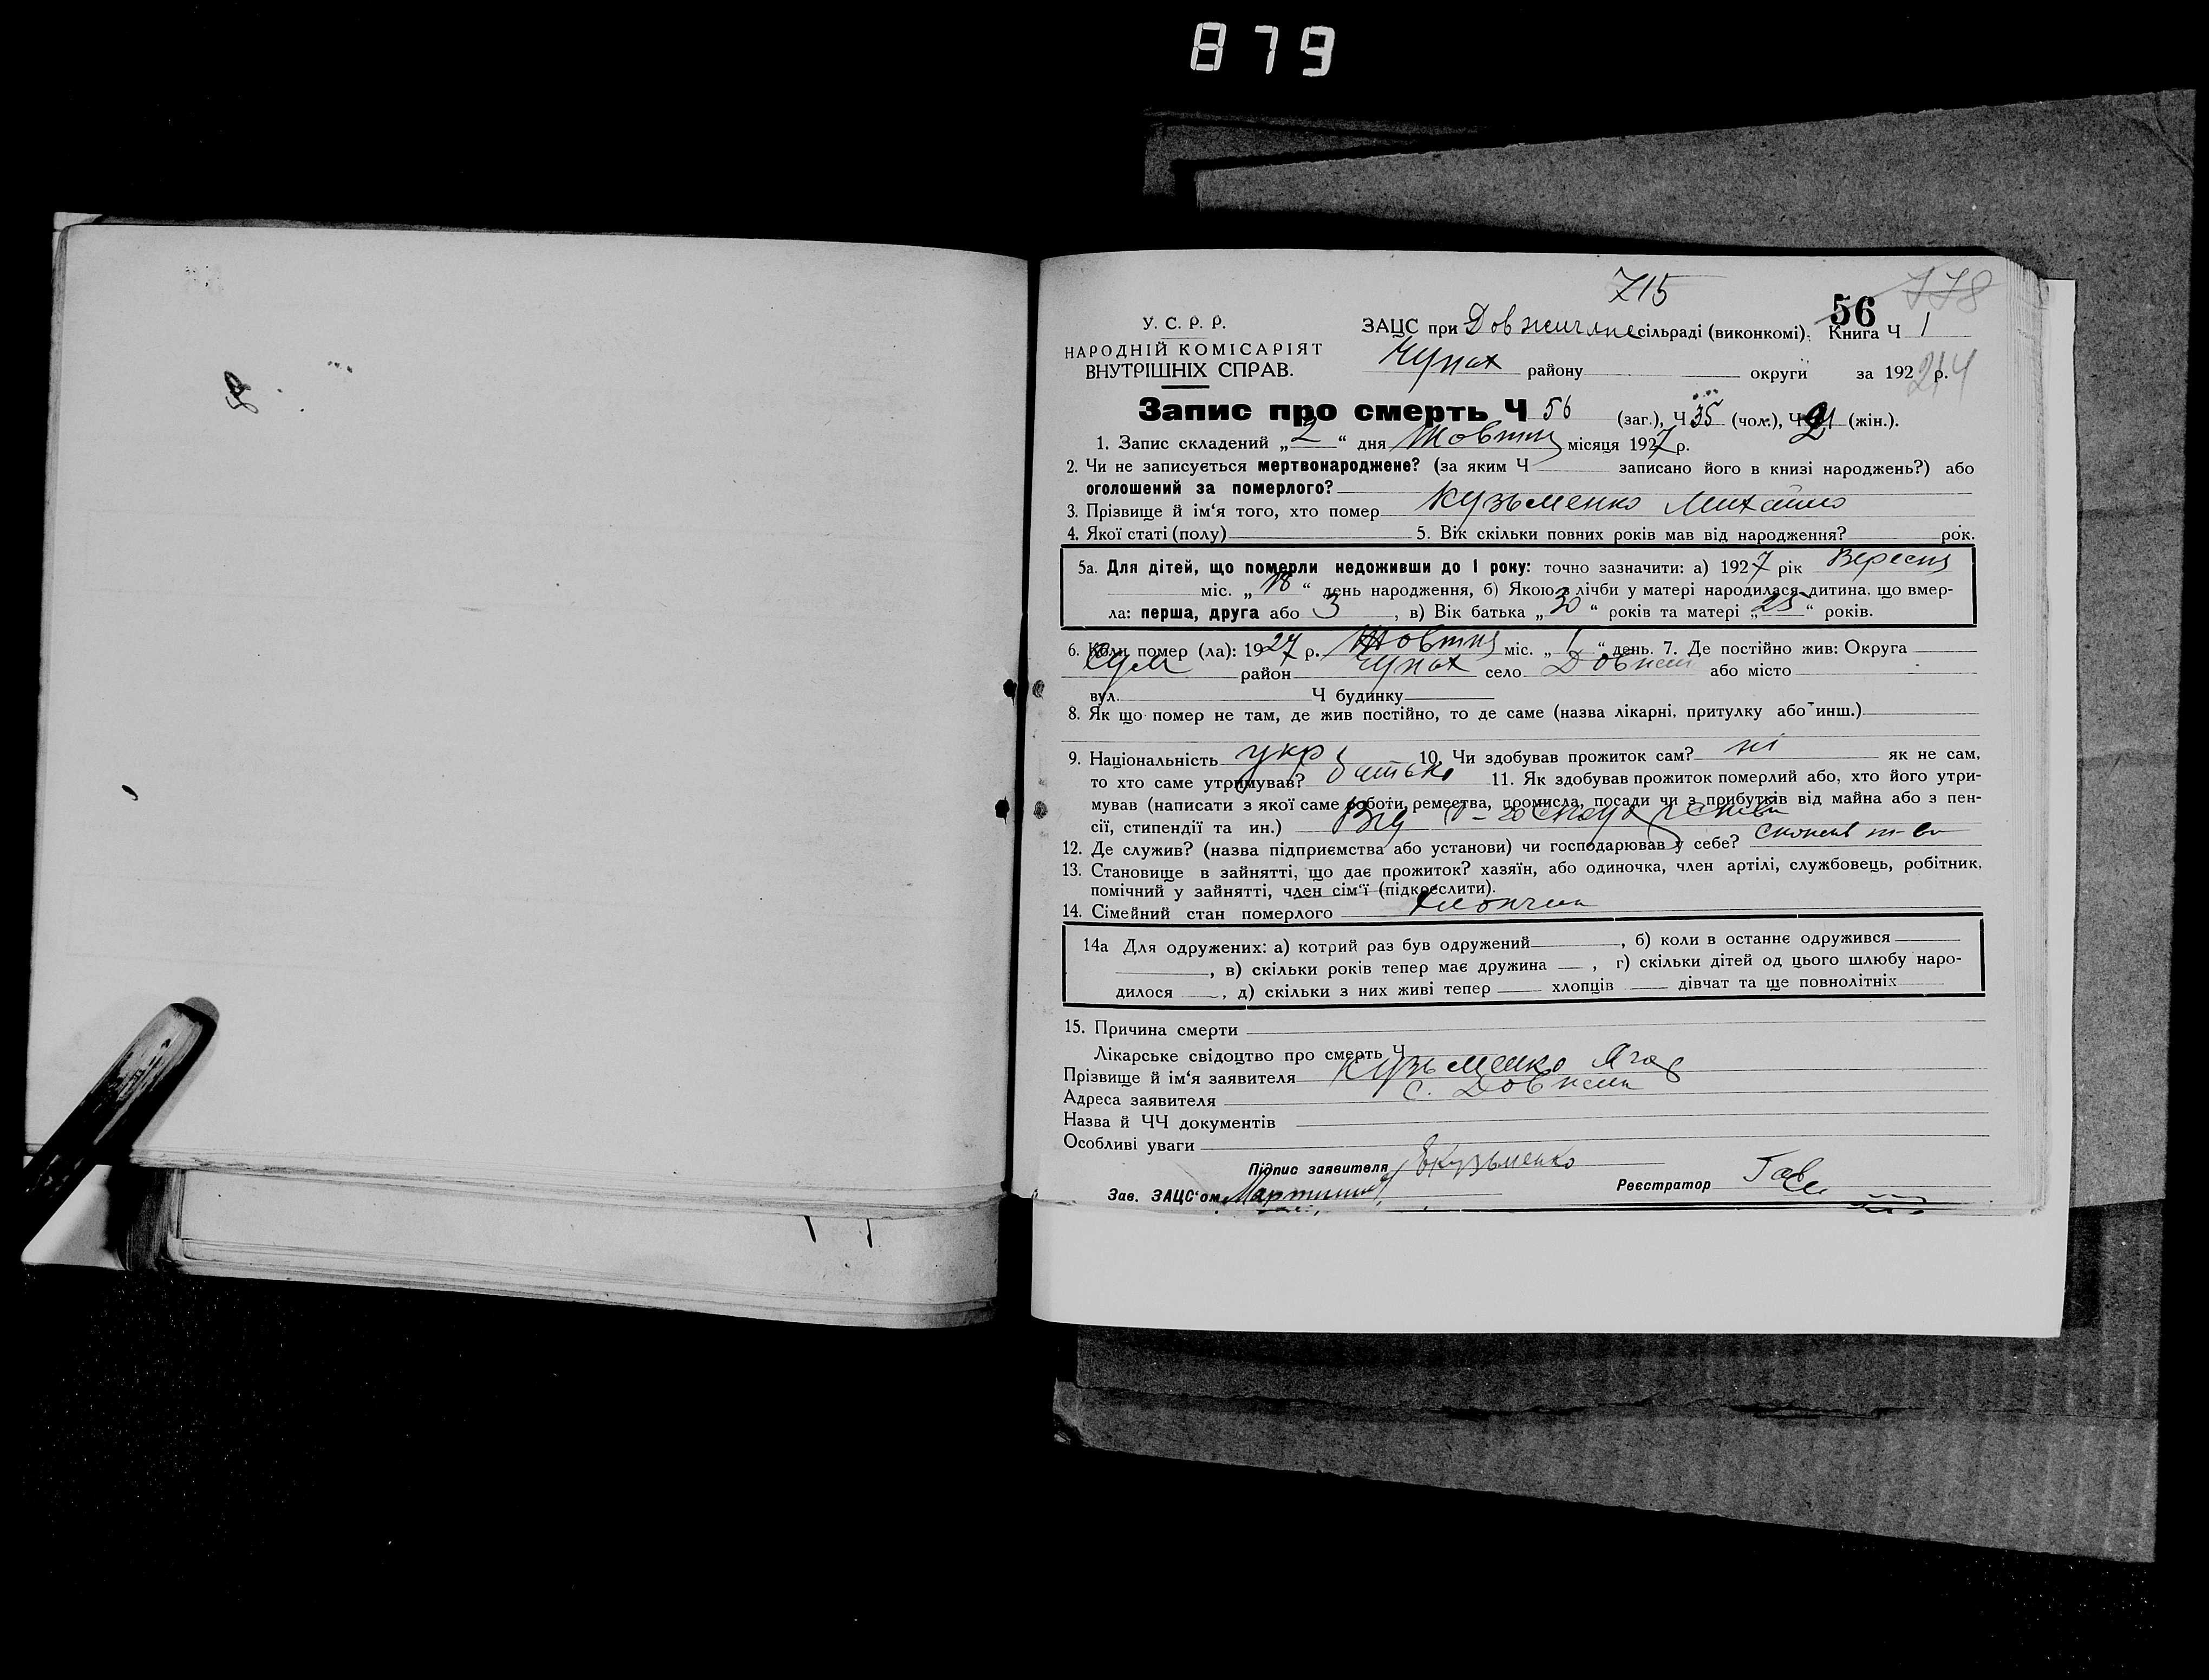 879
715
56 778
У. С. Р. Р.
НАРОДНІЙ КОМІСАРІЯТ
ВНУТРІШНІХ СПРАВ.
ЗАЦС при сільраді (виконкомі). Книга Ч 1
Чупах району округи за 192 р. 214
Запис про смерть Ч 56 (заг.), Ч 35 (чол.), Ч 21 (жін.).
1. Запис складений „ 2 “ дня Жовтня місяця 1927 р.
2. Чи не записується мертвонароджене? (за яким Ч записано його в книзі народжень?) або
оголошений за померлого?
3. Прізвище й ім‘я того, хто помер Кузьменко Михайло
4. Якої статі (полу) 5. Вік скільки повних років мав від народження? рок.
5а. Для дітей, що померли недоживши до 1 року: точно зазначити: а) 1927 рік Вересня
міс. „ 18 “ день народження, б) Якою з лічби у матері народилася дитина, що вмер-
ла: перша, друга або 3 , в) Вік батька „ 30 “ років та матері „ 25 “ років.
6. Коли помер (ла): 1927 р. Жовтня міс. „ 1 “ день. 7. Де постійно жив: Округа
Сум район Чупах село Довжик або місто
вул. Ч будинку
8. Як що помер не там, де жив постійно, то де саме (назва лікарні, притулку або инш.)
9. Національність укр 10. Чи здобував прожиток сам? ні як не сам,
то хто саме утримував? батько 11. Як здобував прожиток померлий або, хто його утри-
мував (написати з якої саме роботи, ремества, промисла, посади чи з прибутків від майна або з пен-
сії, стипендії та ин.)
12. Де служив? (назва підприємства або установи) чи господарював у себе?
13. Становище в зайнятті, що дає прожиток? хазяїн, або одиночка, член артілі, службовець, робітник,
помічний у зайнятті, член сім‘ї (підкреслити).
14. Сімейний стан померлого хлопчик
14а Для одружених: а) котрий раз був одружений , б) коли в останнє одружився
, в) скільки років тепер має дружина , г) скільки дітей од цього шлюбу наро-
дилося , д) скільки з них живі тепер хлопців дівчат та ще повнолітніх
15. Причина смерти
Лікарське свідоцтво про смерть Ч
Прізвище й ім‘я заявителя Кузьменко
Адреса заявителя с. Довжик
Назва й ЧЧ документів
Особливі уваги
Підпис заявителя Кузьменко
Зав. ЗАЦС‘ом Реєстратор